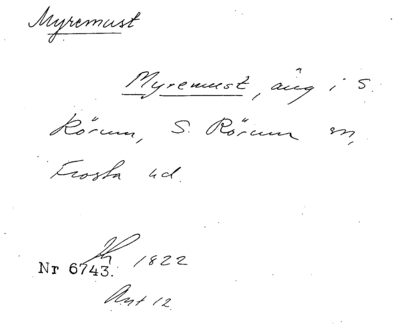 Myremust
Myremust, äng i S.
Rörum, S. Rörum sn,
Frosta hd.
Nr 6743. 1822
Ant 12